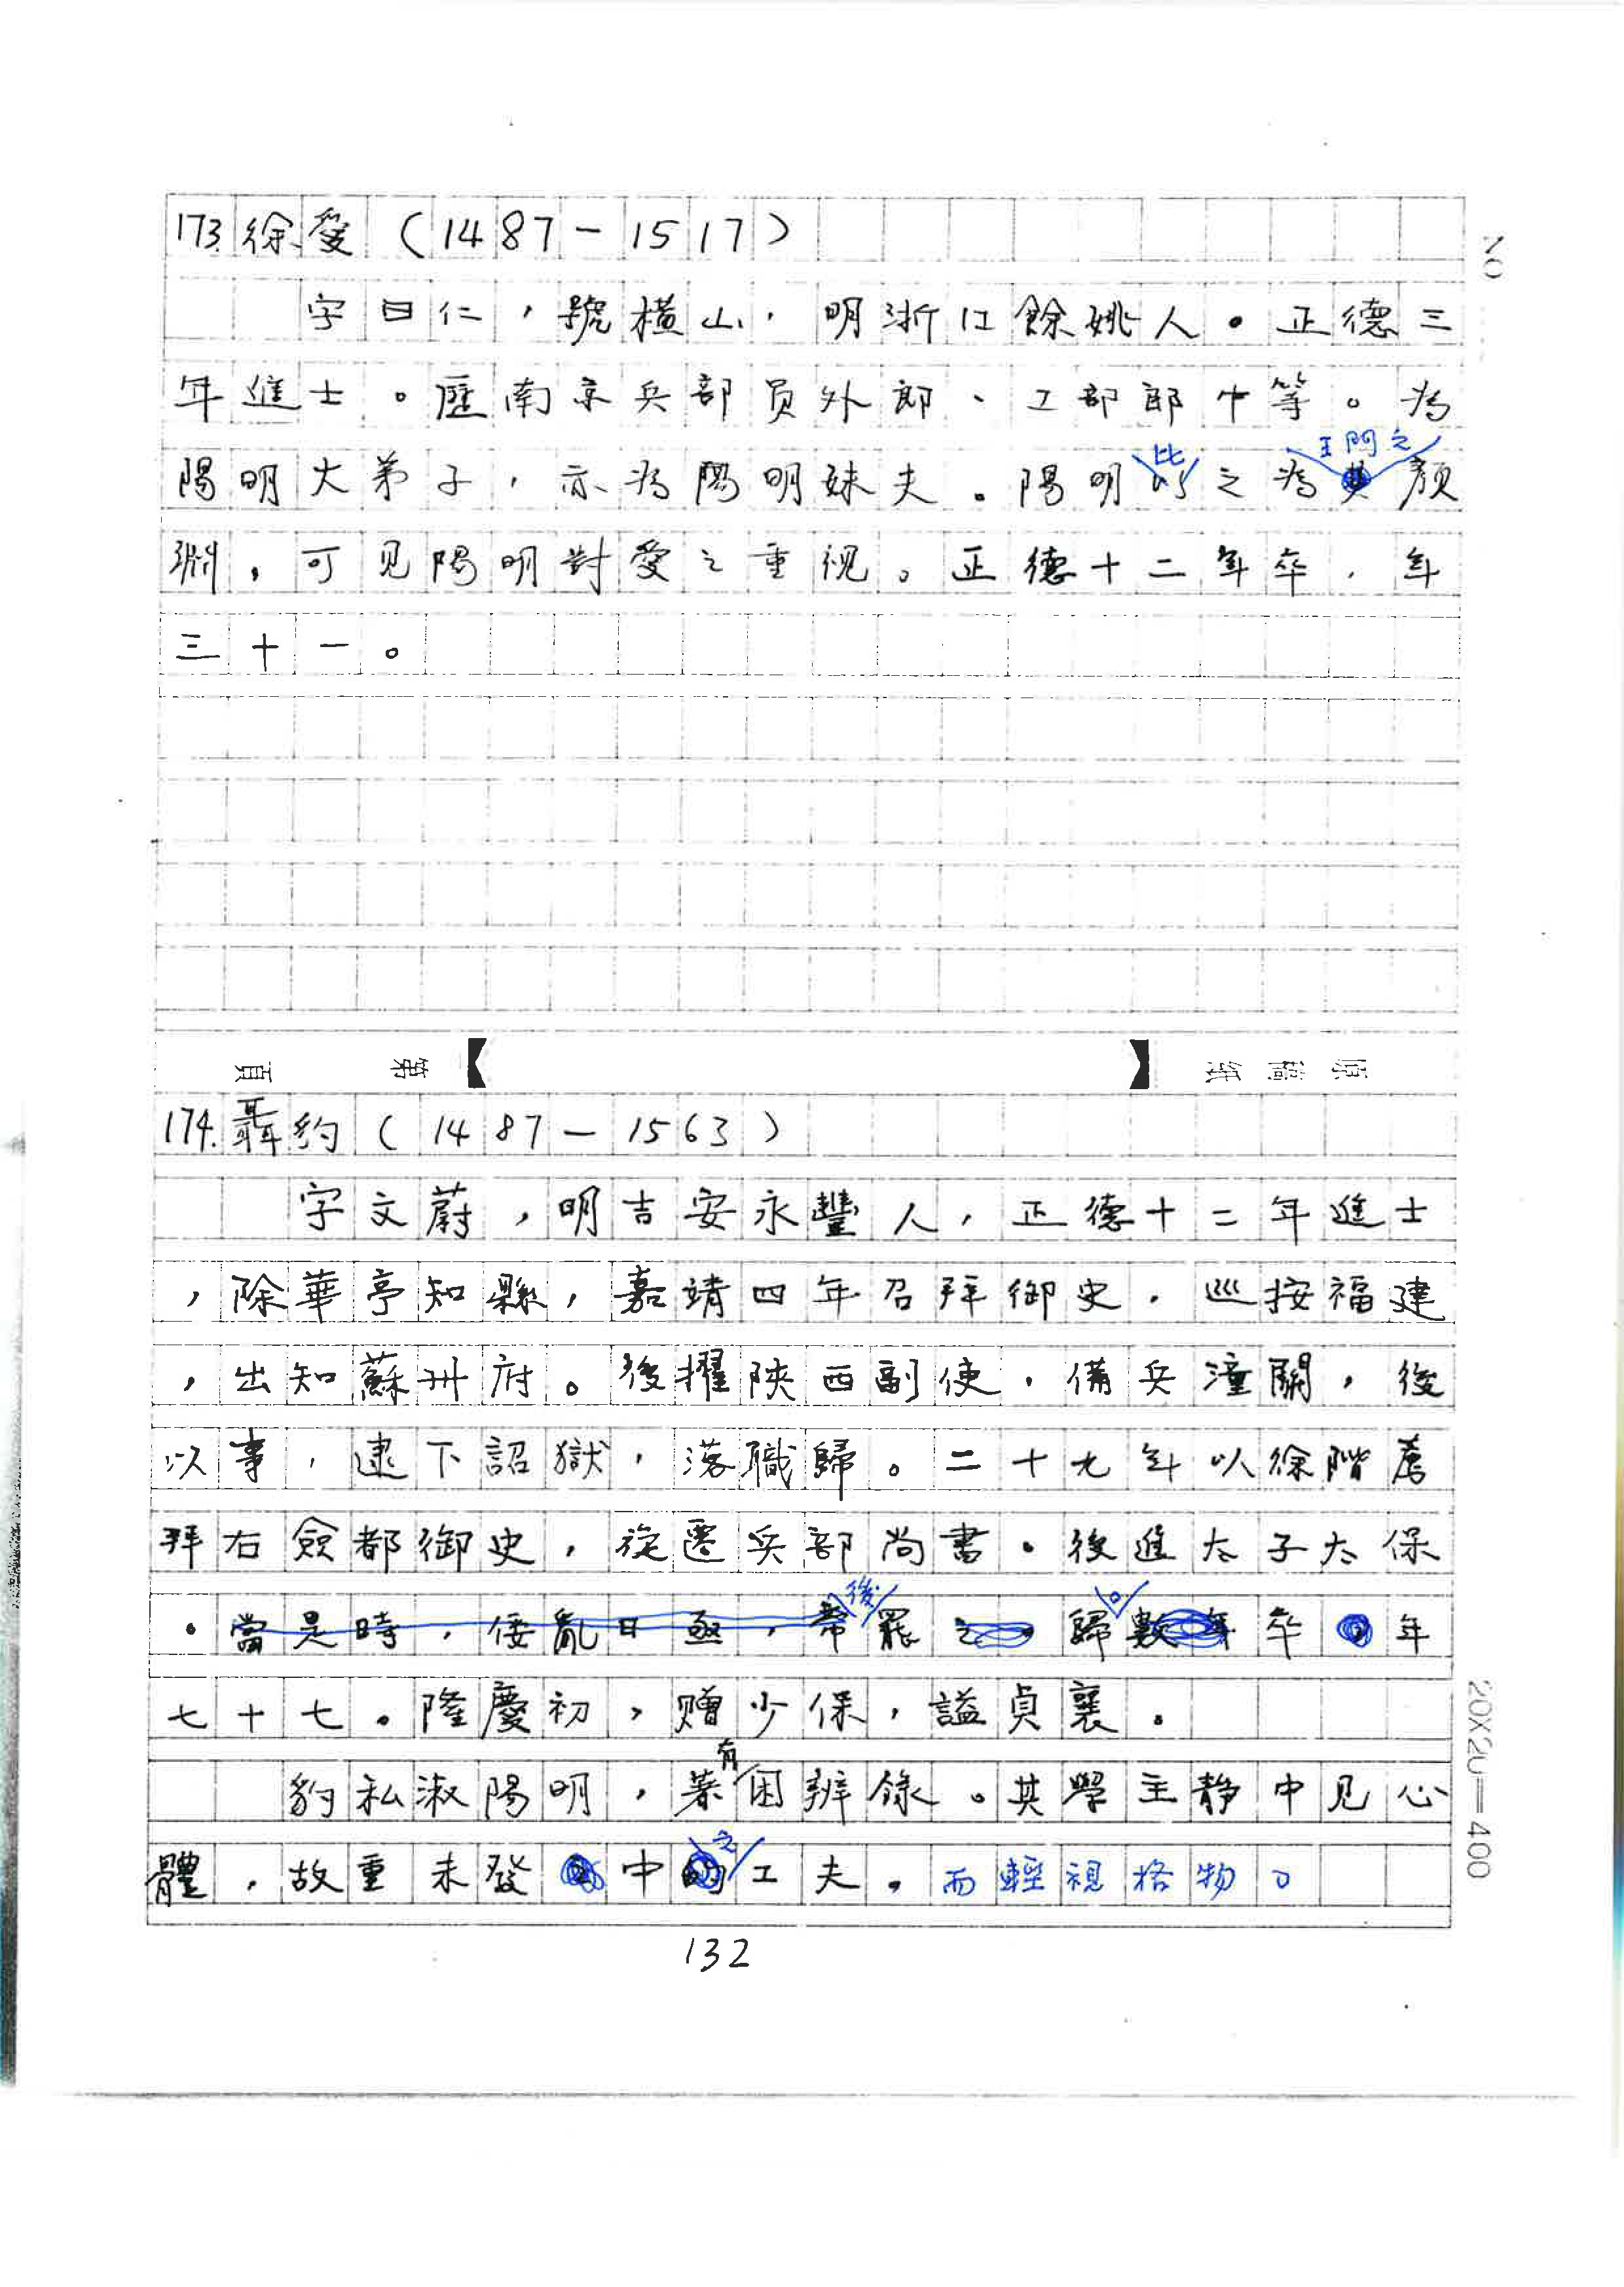 173.徐愛（1487－1517）
字曰仁，號橫山，明浙江餘姚人。正德三
年進士。歷南京兵部員外郎、工部郎中等。為
陽明大弟子，亦為陽明妹夫。陽明比之為王門之顏
淵，可見陽明對愛之重視。正德十二年卒，年
三十一。
第 頁
原稿紙
174.聶豹（1487－1563）
字文蔚，明吉安永豐人，正德十二年進士
，除華亭知縣，嘉靖四年召拜御史，巡按福建
，出知蘇州府。後擢陝西副使，備兵潼關，後
以事，逮下詔獄，落職歸。二十九年以徐階薦
拜右僉都御史，從遷兵部尚書。後進太子太保
。當是時，倭亂日亟，帝後罷之歸。數年卒年
七十七。隆慶初，贈少保，謚貞襄。
豹私淑陽明，著有困辨錄。其學主靜中見心
體，故重未發中之工夫。而輕視格物。
20X20=400
132